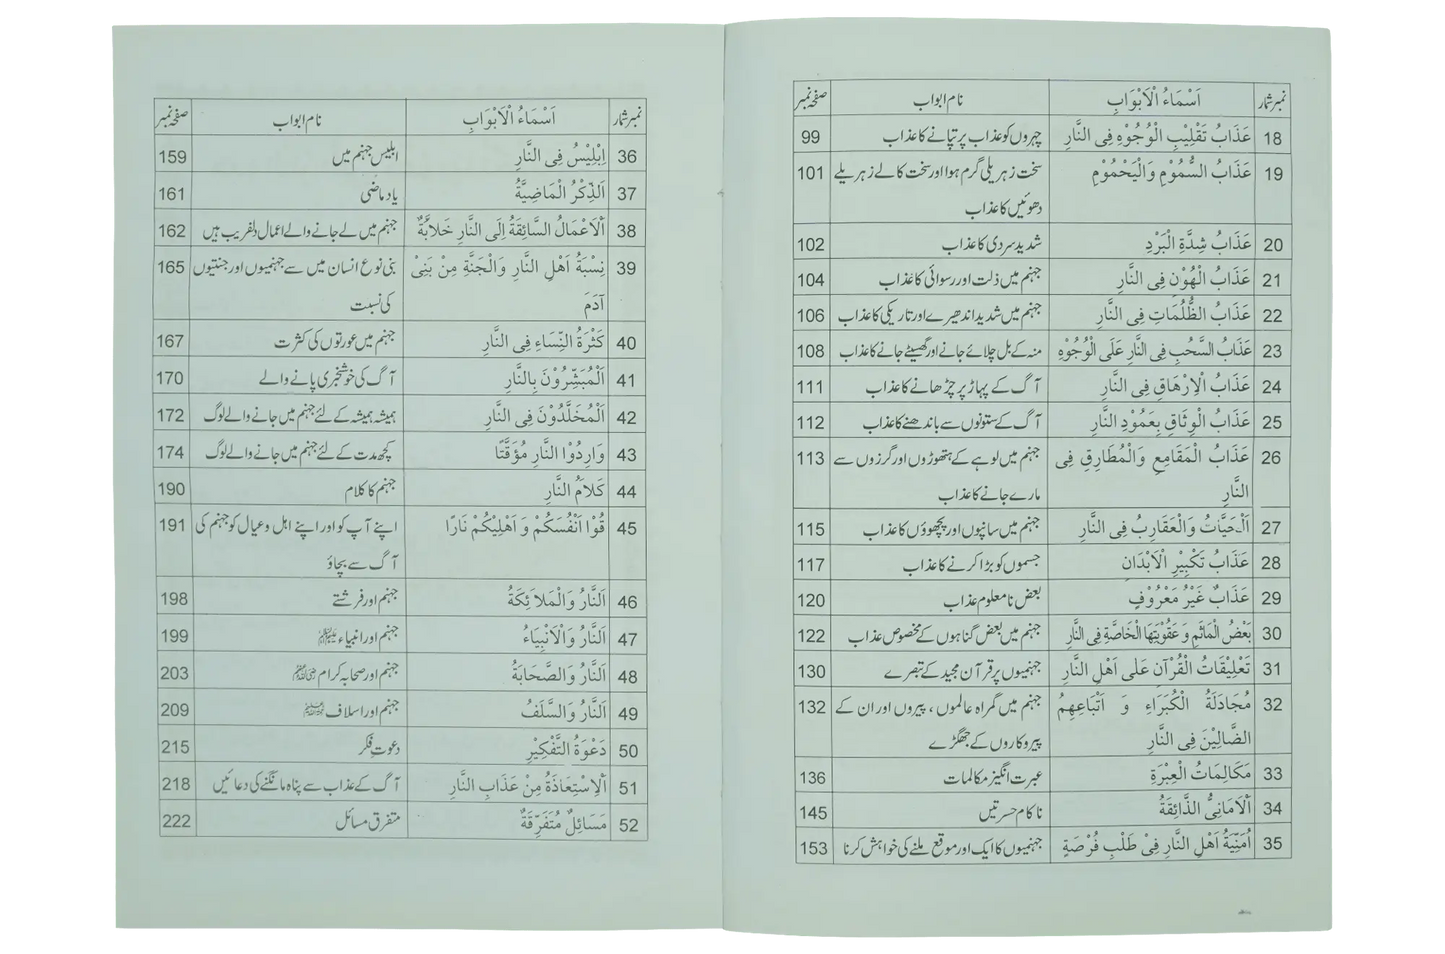 نمبر شمار اَسْمَاءُ الْاَبْوَابِ نام ابواب صفحہ نمبر
18 عَذَابُ تَقْلِيْبِ الْوُجُوْهِ فِى النَّارِ چہروں کو عذاب پر تپانے کا عذاب 99
19 عَذَابُ السُّمُوْمِ وَالْيَحْمُوْمِ سخت زہریلی گرم ہوا اور سخت کالے زہریلے 101
دھوئیں کا عذاب
20 عَذَابُ شِدَّةِ الْبَرْدِ شدید سردی کا عذاب 102
21 عَذَابُ الْهُوْنِ فِى النَّارِ جہنم میں ذلت اور رسوائی کا عذاب 104
22 عَذَابُ الظُّلُمَاتِ فِى النَّارِ جہنم میں شدید اندھیرے اور تاریکی کا عذاب 106
23 عَذَابُ السَّحْبِ فِى النَّارِ عَلَى الْوُجُوْهِ منہ کے بل چلائے جانے اور گھسیٹے جانے کا عذاب 108
24 عَذَابُ الْاِرْهَاقِ فِى النَّارِ آگ کے پہاڑ پر چڑھانے کا عذاب 111
25 عَذَابُ الْوِثَاقِ بِعَمُوْدِ النَّارِ آگ کے ستونوں سے باندھنے کا عذاب 112
26 عَذَابُ الْمَقَامِعِ وَالْمُطَارِقِ فِى جہنم میں لوہے کے ہتھوڑوں اور گرزوں سے 113
النَّارِ مارے جانے کا عذاب
27 اَلْحَيَّاتُ وَالْعَقَارِبُ فِى النَّارِ جہنم میں سانپوں اور بچھوؤں کا عذاب 115
28 عَذَابُ تَكْبِيْرِ الْاَبْدَانِ جسموں کو بڑا کرنے کا عذاب 117
29 عَذَابٌ غَيْرُ مَعْرُوْفٍ بعض نامعلوم عذاب 120
30 بَعْضُ الْمَاثِمِ وَ عَقُوْبَتِهَا الْخَاصَّةِ فِى النَّارِ جہنم میں بعض گناہوں کے مخصوص عذاب 122
31 تَعْلِيْقَاتُ الْقُرْآنِ عَلٰى اَهْلِ النَّارِ جہنمیوں پر قرآن مجید کے تبصرے 130
32 مُجَادَلَةُ الْكُبَرَاءِ وَ اَتْبَاعِهِمُ جہنم میں گمراہ عالموں ، پیروں اور ان کے 132
الضَّالِّيْنَ فِى النَّارِ پیروکاروں کے جھگڑے
33 مَكَالِمَاتُ الْعِبْرَةِ عبرت انگیز مکالمات 136
34 اَلْاَمَانِىُّ الذَّائِقَةُ ناکام حسرتیں 145
35 اُمْنِيَّةُ اَهْلِ النَّارِ فِىْ طَلْبِ فُرْصَةٍ جہنمیوں کا ایک اور موقع ملنے کی خواہش کرنا 153
نمبر شمار اَسْمَاءُ الْاَبْوَابِ نام ابواب صفحہ نمبر
36 اِبْلِيْسُ فِى النَّارِ ابلیس جہنم میں 159
37 اَلذِّكْرُ الْمَاضِيَّةُ یاد ماضی 161
38 اَلْاَعْمَالُ السَّائِقَةُ اِلَى النَّارِ خَلَابَّةٌ جہنم میں لے جانے والے اعمال دلفریب ہیں 162
39 نِسْبَةُ اَهْلِ النَّارِ وَالْجَنَّةِ مِنْ بَنِىْ بنی نوع انسان میں سے جہنمیوں اور جنتیوں 165
آدَمَ کی نسبت
40 كَثْرَةُ النِّسَاءِ فِى النَّارِ جہنم میں عورتوں کی کثرت 167
41 اَلْمُبَشِّرُوْنَ بِالنَّارِ آگ کی خوشخبری پانے والے 170
42 اَلْمُخَلَّدُوْنَ فِى النَّارِ ہمیشہ ہمیشہ کے لئے جہنم میں جانے والے لوگ 172
43 وَارِدُوْا النَّارِ مُؤَقَّتًا کچھ مدت کے لئے جہنم میں جانے والے لوگ 174
44 كَلَامُ النَّارِ جہنم کا کلام 190
45 قُوْا اَنْفُسَكُمْ وَ اَهْلِيْكُمْ نَارًا اپنے آپ کو اور اپنے اہل و عیال کو جہنم کی 191
آگ سے بچاؤ
46 اَلنَّارُ وَالْمَلاَئِكَةُ جہنم اور فرشتے 198
47 اَلنَّارُ وَالْاَنْبِيَاءُ جہنم اور انبیاء 199
48 اَلنَّارُ وَالصَّحَابَةُ جہنم اور صحابہ کرام 203
49 اَلنَّارُ وَالسَّلَفُ جہنم اور اسلاف 209
50 دَعْوَةُ التَّفْكِيْرِ دعوت فکر 215
51 اَلْاِسْتِعَاذَةُ مِنْ عَذَابِ النَّارِ آگ کے عذاب سے پناہ مانگنے کی دعائیں 218
52 مَسَائِلٌ مُتَفَرِّقَةٌ متفرق مسائل 222